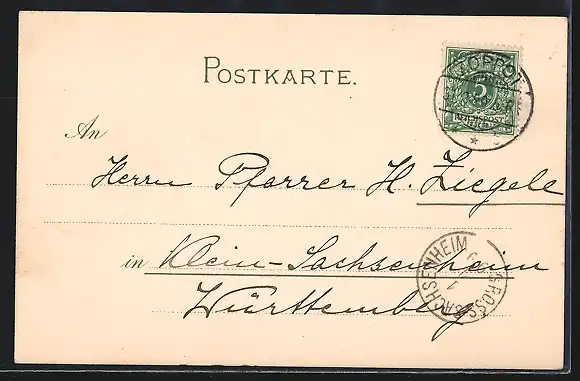 POSTKARTE.
5
REICHSPOST
An
Herrn Pfarrer H. Ziegele
in Klein-Sachsenheim
Württemberg
GROSS-SACHSENHEIM